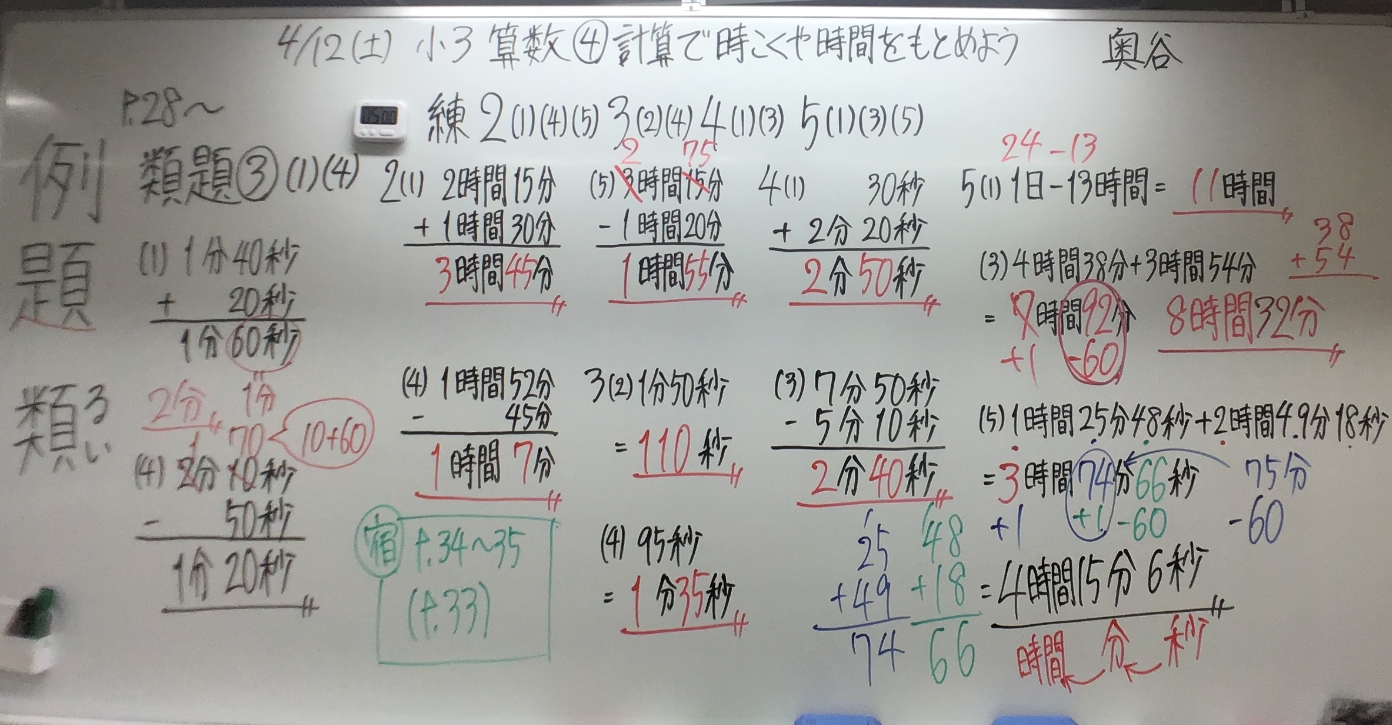 4/12(土) 小3 算数④計算で時こくや時間をもとめよう 奥谷
P.28〜
例題
類題③(1)(4)
(1) 1分40秒
+ 20秒
1分60秒
1分
2分
類るい
1 70 10+60
(4) 2分10秒
- 50秒
1分20秒
練 2(1)(4)(5) 3(2)(4) 4(1)(3) 5(1)(3)(5)
2(1) 2時間15分
+ 1時間30分
3時間45分
2 75
(5) 3時間15分
- 1時間20分
1時間55分
4(1) 30秒
+ 2分20秒
2分50秒
24-13
5(1) 1日-13時間= 11時間
38
+54
(3) 4時間38分+3時間54分
= 7時間92分 8時間32分
+1 -60
(4) 1時間52分
- 45分
1時間7分
3(2) 1分50秒
= 110秒
(3) 7分50秒
- 5分10秒
2分40秒
(5) 1時間25分48秒+2時間49分18秒
= 3時間74分66秒 75分
+1 +1 -60 -60
= 4時間15分6秒
時間 分 秒
宿 P.34〜35
(P.33)
(4) 95秒
= 1分35秒
1
25
+49
74
1
48
+18
66